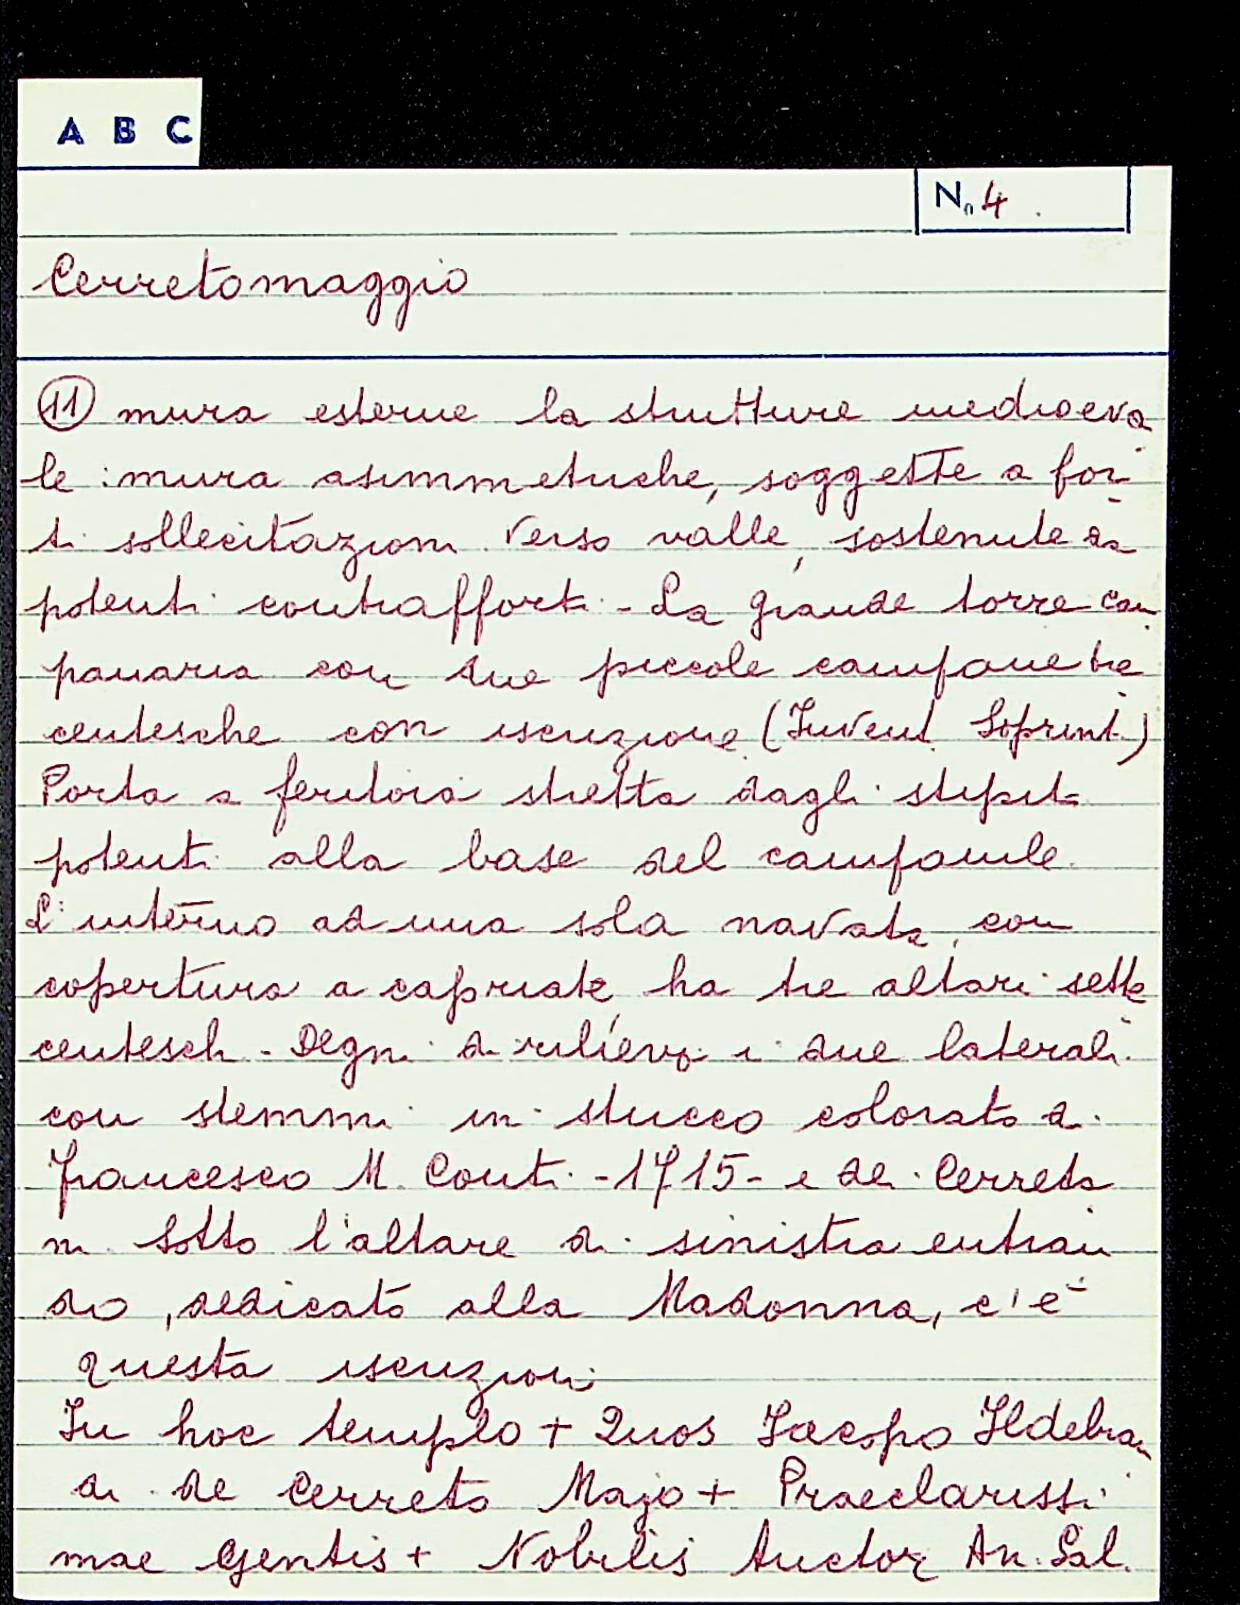 A B C
No 4
Cerretomaggio
11 mura esterne la strutture medioeva
le: mura asimmetriche, soggette a for
ti sollecitazioni verso valle, sostenute da
potenti contrafforti - La grande torre cam
panaria con due piccole campane tre
centesche con iscrizione (Iuvent Soprint.)
Porta a feritoia stretta dagli stipiti
potenti alla base del campanile.
L'interno ad una sola navata, con
copertura a capriate, ha tre altari sette
centeschi - Degni di rilievo i due laterali
con stemmi in stucco colorato di
Francesco M. Conti - 1715 - e dei Cerreta
ni. Sotto l'altare di sinistra entran
do, dedicato alla Madonna, c'è
questa iscrizioni
In hoc templo + Quos Iacopo Ildebran
di de Cerreto Majo + Praeclarissi
mae Gentis + Nobilis Auctor An. Sal.